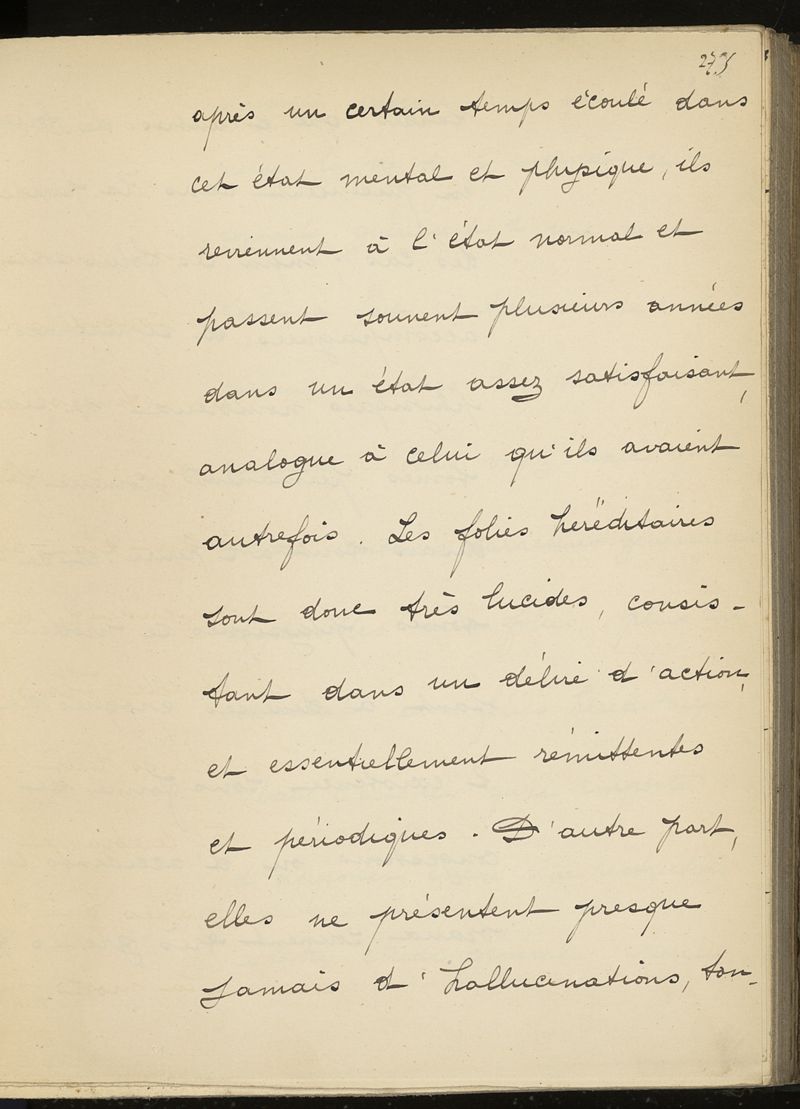 275
après un certain temps écoulé dans
cet état mental et physique, ils
reviennent à l'état normal et
passent souvent plusieurs années
dans un état assez satisfaisant,
analogue à celui qu'ils avaient
autrefois. Les folies heréditaires
sont donc très lucides, consis-
tant dans un délire d'action,
et essentiellement rémittentes
et périodiques. D'autre part,
elles ne présentent presque
jamais d'hallucinations, tou-